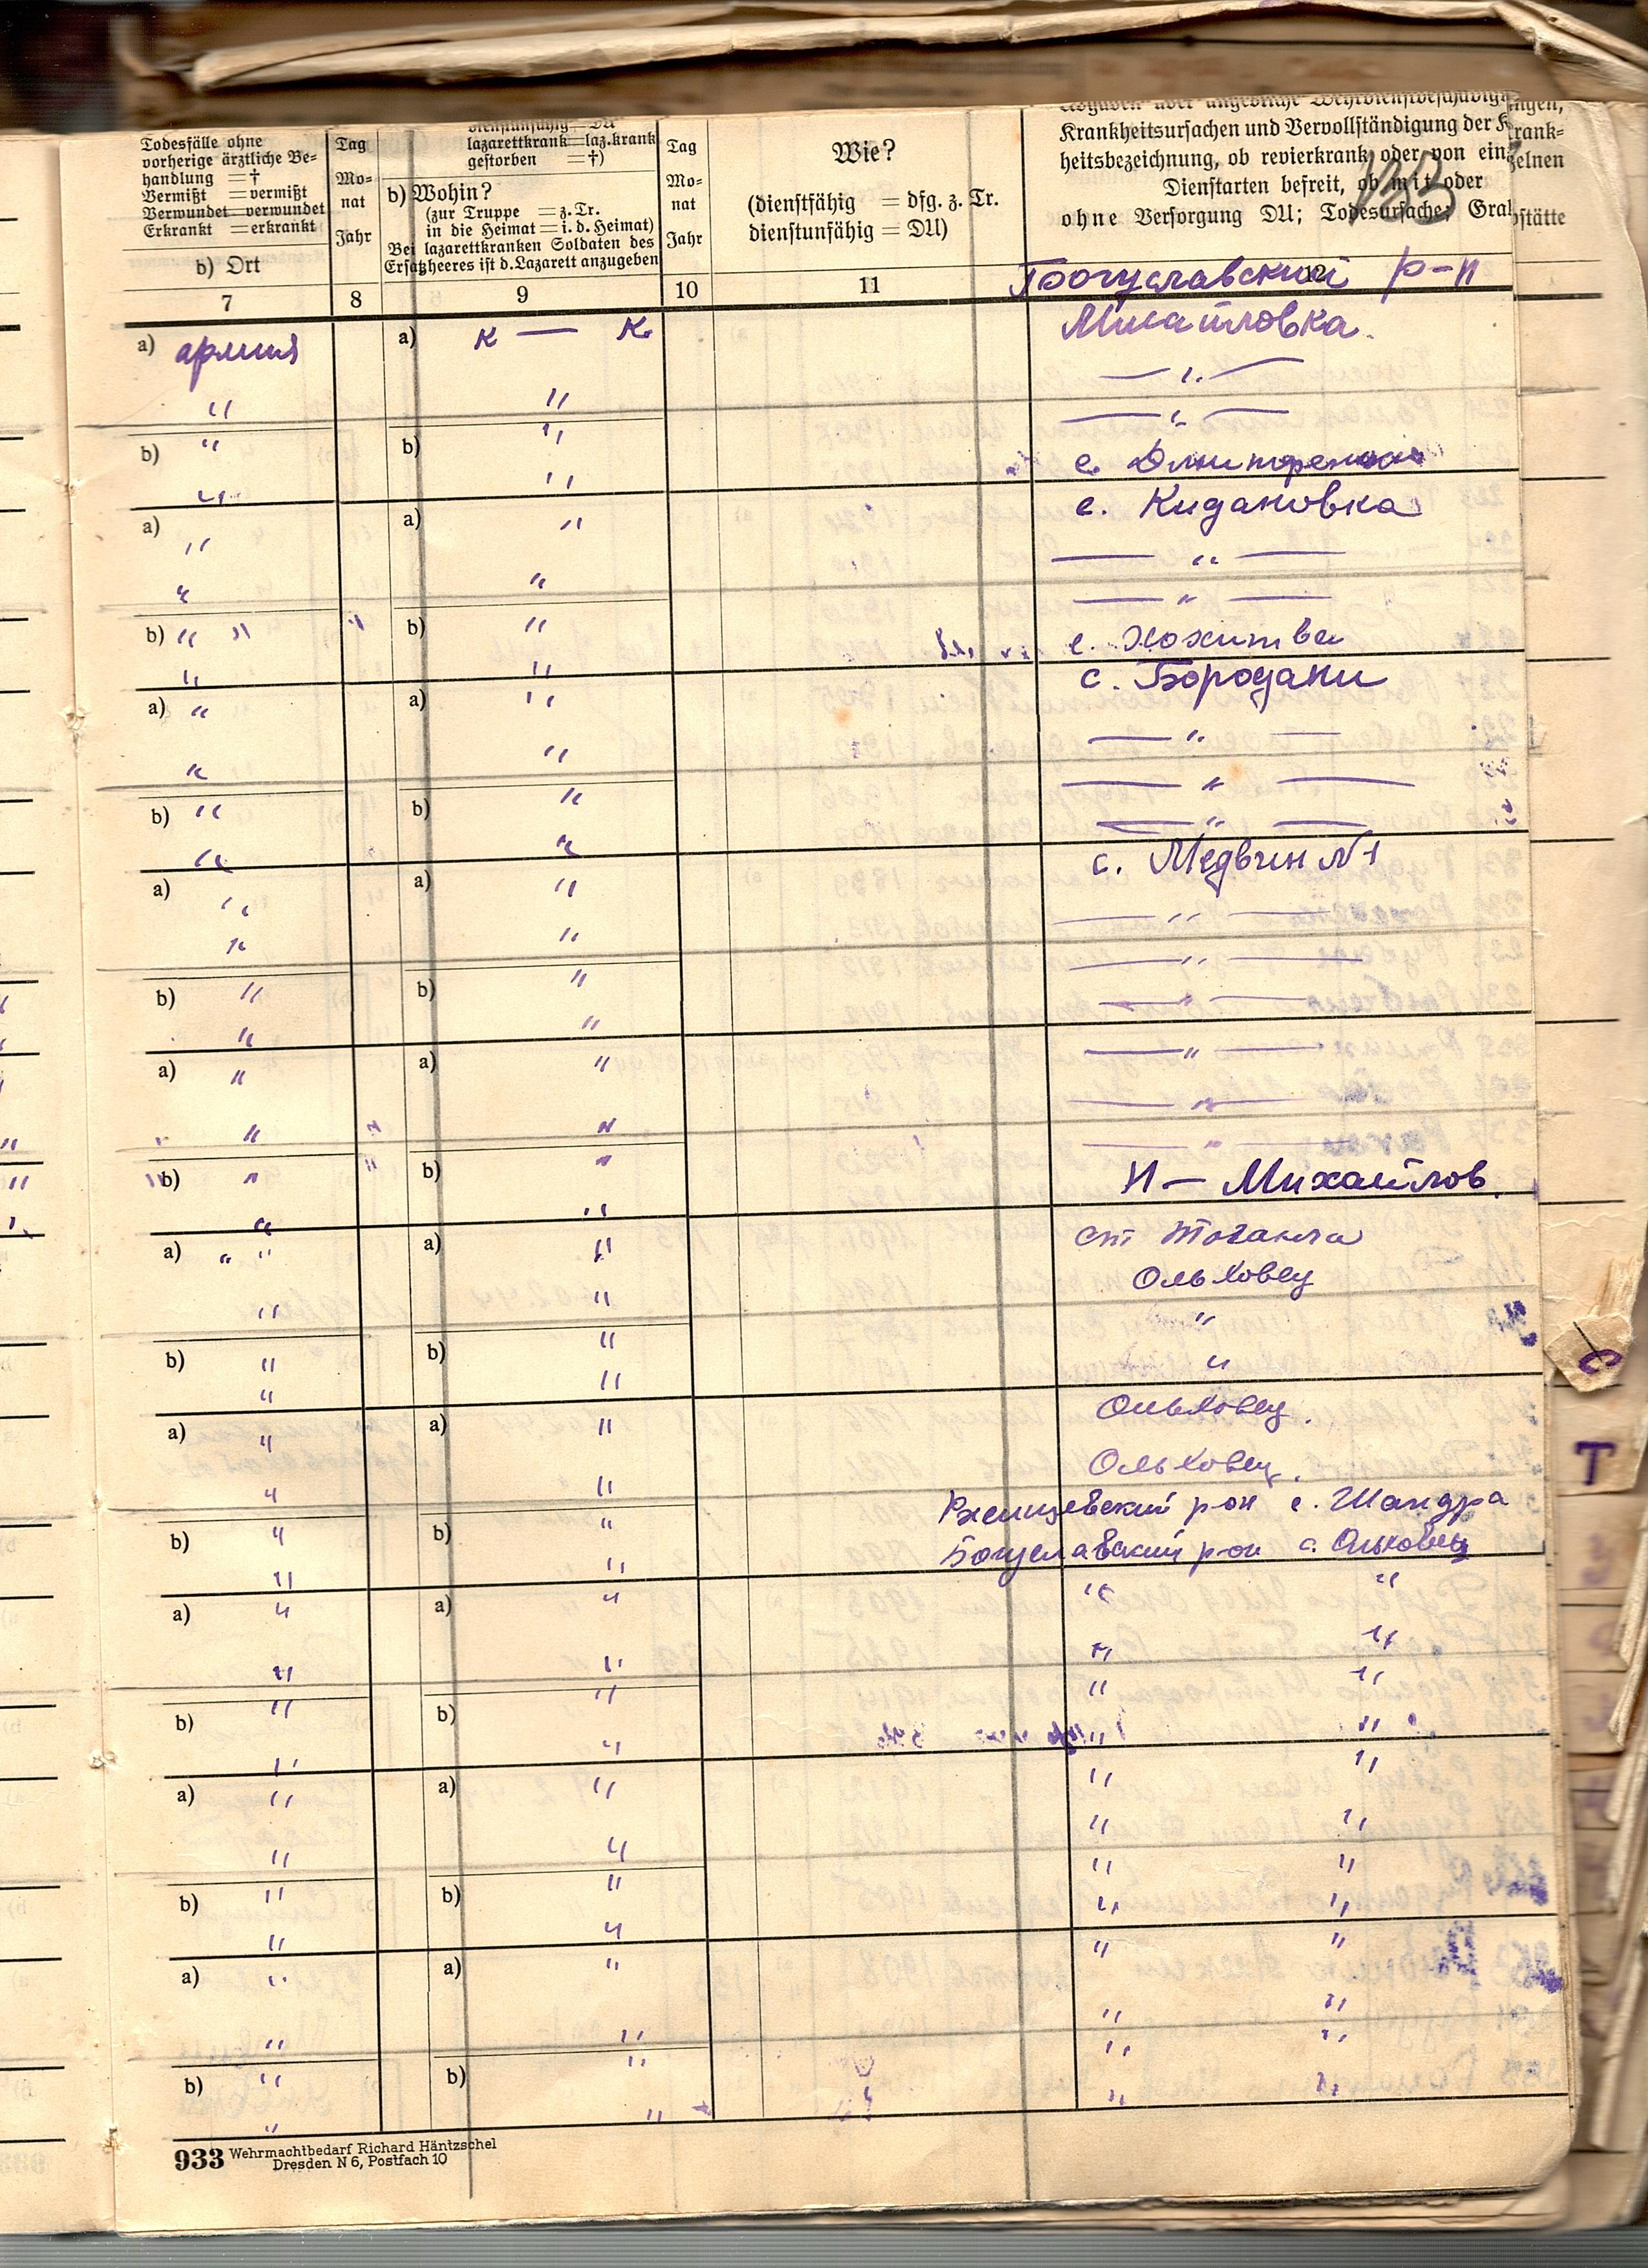 Todesfälle ohne
vorherige ärztliche Be-
handlung = †
Vermißt = vermißt
Verwundet = verwundet
Erkrankt = erkrankt
b) Ort
7
Tag
Mo-
nat
Jahr
8
dienstunfähig = DU
lazarettkrank = laz.krank
gestorben = †)
b) Wohin?
(zur Truppe = z. Tr.
in die Heimat = i. d. Heimat)
Bei lazarettkranken Soldaten des
Ersatzheeres ist d. Lazarett anzugeben
9
Tag
Mo-
nat
Jahr
10
Wie?
(dienstfähig = dfg. z. Tr.
dienstunfähig = DU)
11
Krankheitsursachen und Vervollständigung der Krank-
heitsbezeichnung, ob revierkrank oder von einzelnen
Dienstarten befreit, ob mit oder
ohne Versorgung DU; Todesursache; Grabstätte
12
Богуславский р-н
a) армия a) к — к. Михайловка.
" " — " —
b) " b) " — " —
" "
a) a) " с. Кидановка
" — " —
" " — " —
b) " " " b) " с. Хохитва
" " с. Бородани
a) " a) " — " —
" " — " —
b) " b) " — " —
" " с. Медвин №1
a) " a) " — " —
" " — " —
b) " b) " — " —
" " — " —
a) " a) " — " —
" " " — " —
b) " " b) " Н — Михайлов.
" "
a) " " a) " ст
" " Ольховец
b) " b) " "
" " "
a) " a) " Ольховец.
" " Ольховец.
b) " b) " Ржищевский рон с. Шандра
" " Богуславский рон с. Ольховец
a) " a) " " "
" " " "
b) " b) " " "
" " " "
a) " a) " " "
" " " "
b) " b) " " "
" " " "
a) " a) " " "
" " " "
b) " b) " " "
" " " "
С
Т
933 Wehrmachtbedarf Richard Häntzschel
Dresden N 6, Postfach 10